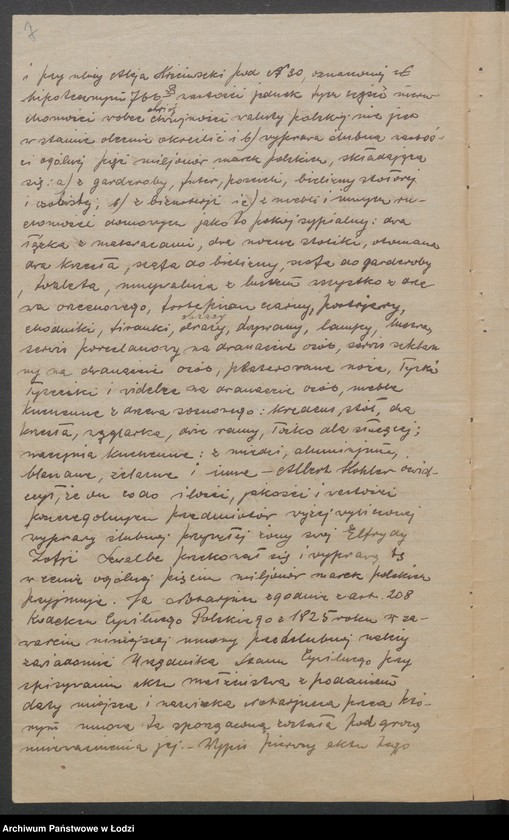 7
i przy ulicy Aleja Kościuszki pod № 30, oznaczonej №
hipotecznym 766 wartości jednak tych części nieru-
chomości wobec chwiejności waluty polskiej nie jest
w stanie obecnie określić i b) wyprawa ślubna wartoś-
ci ogólnej pięć miljonów marek polskich, składająca
się: a) z garderoby, futer, pościeli, bielizny stołowej
i osobistej, b) z biżuterji i c) z mebli i innych ru-
chomości domowych jako to pokój sypialny: dwa
łóżka z materacami, dwa nocne stoliki, otomana
dwa krzesła, szafa do bielizny, szafa do garderoby
, toaleta, umywalnia z lustrem wszystko z drze-
wa orzechowego, fortepian czarny, portjery,
chodniki, firanki, obrazy, dywany, lampy, lustra,
serwis porcelanowy na dwanaście osób, serwis szklan-
ny na dwanaście osób, platerowane noże, łyżki
łyżeczki i widelce na dwanaście osób, meble
kuchenne z drzewa sosnowego: kredens, stół, dwa
krzesła, węglarka, dwie wanny, łóżko dla służącej;
naczynia kuchenne: z miedzi, aluminjum,
blaszane, żelazne i inne – Albert Kohler oświd-
czył, że on co do ilości, jakości i wartości
poszczególnych przedmiotów wyżej wyliczonej
wyprawy ślubnej przyszłej żony swej Elfrydy
Zofji Szwalbe przekonał się i wyprawę tę
w cenie ogólnej pięciu miljonów marek polskich
przyjmuje. Ja Notarjusz zgodnie z art. 208
Kodeksu Cywilnego Polskiego z 1825 roku o za-
warciu niniejszej umowy przedślubnej należy
zawiadomić Urzędnika Stanu Cywilnego przy
spisywaniu aktu małżeństwa z podaniem
daty miejsca i nazwiska Notarjusza przed któ-
rym umowa ta sporządzoną została pod grozą
unieważnienia jej. – Wypis pierwszy aktu tego
Archiwum Państwowe w Łodzi